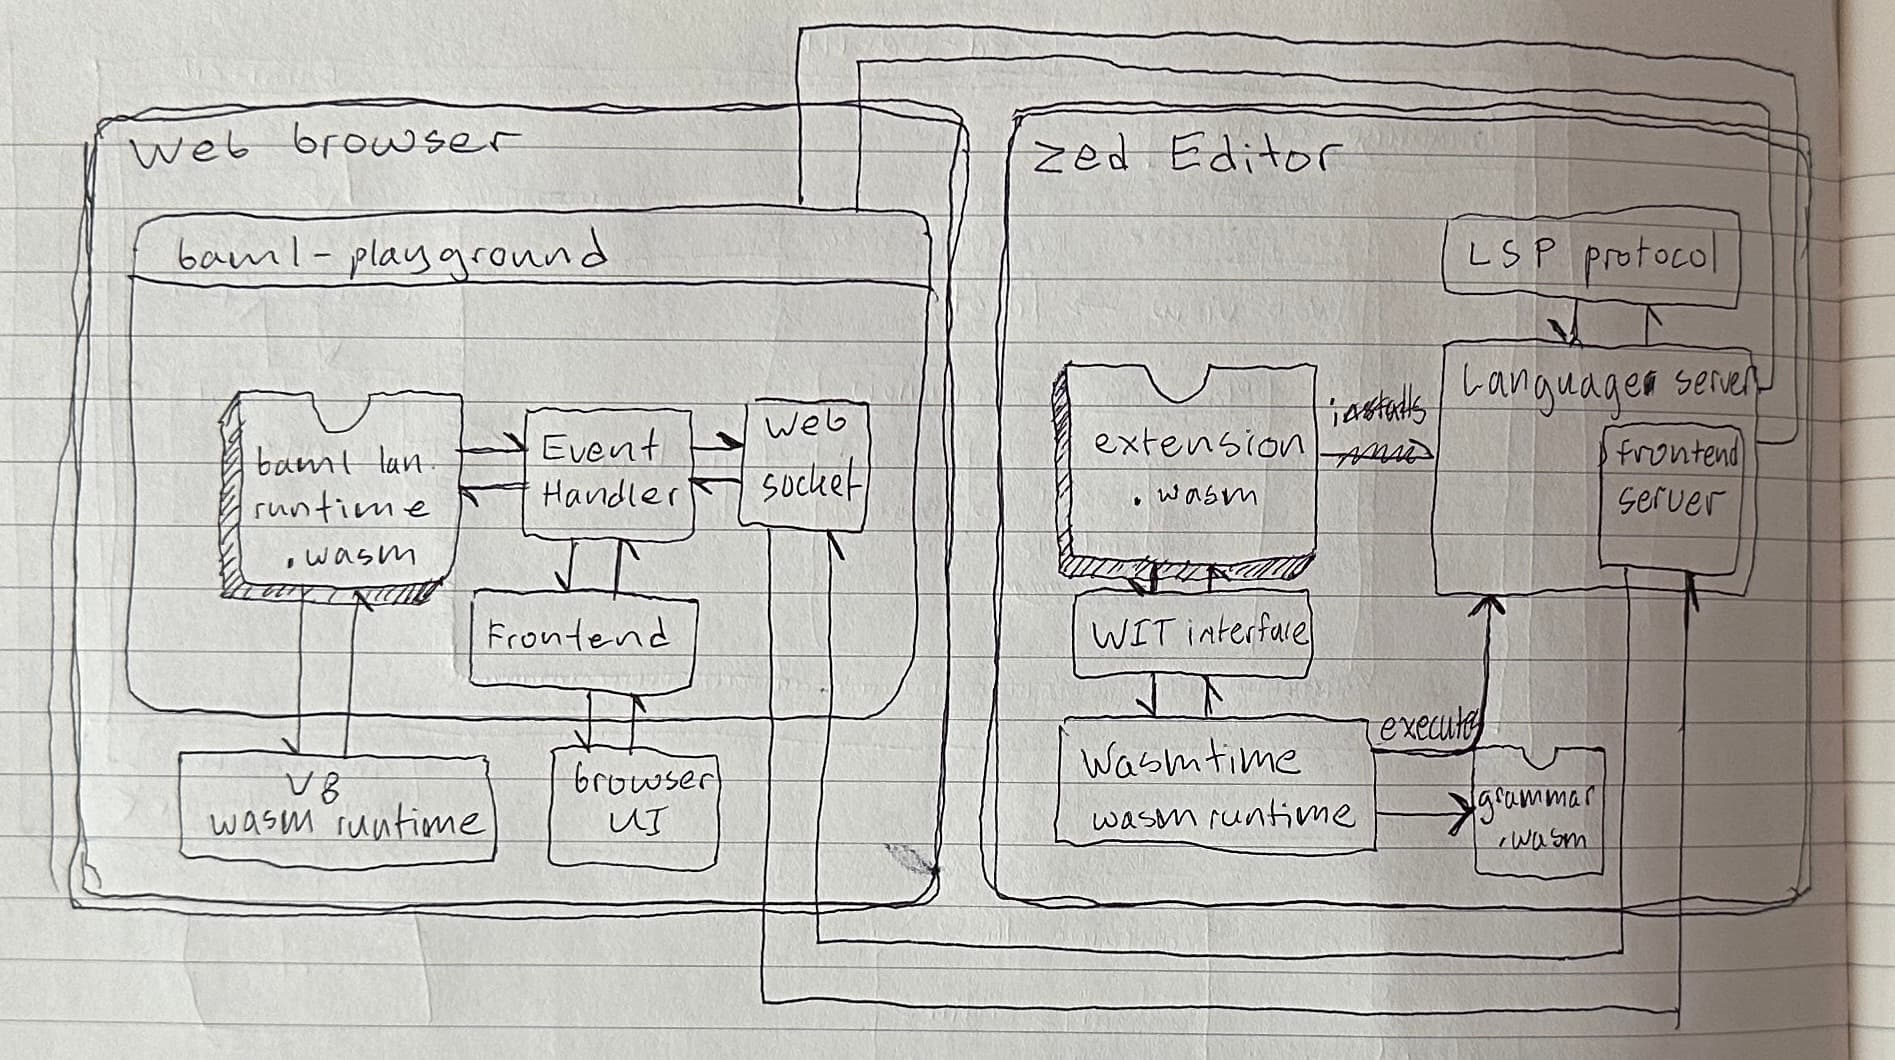 Web browser
baml-playground
baml lan.
runtime
.wasm
Event
Handler
Web
socket
Frontend
V8
wasm runtime
browser
UI
Zed Editor
LSP protocol
Language server
frontend
server
extension
.wasm
installs
WIT interface
Wasmtime
wasm runtime
execute
grammar
.wasm